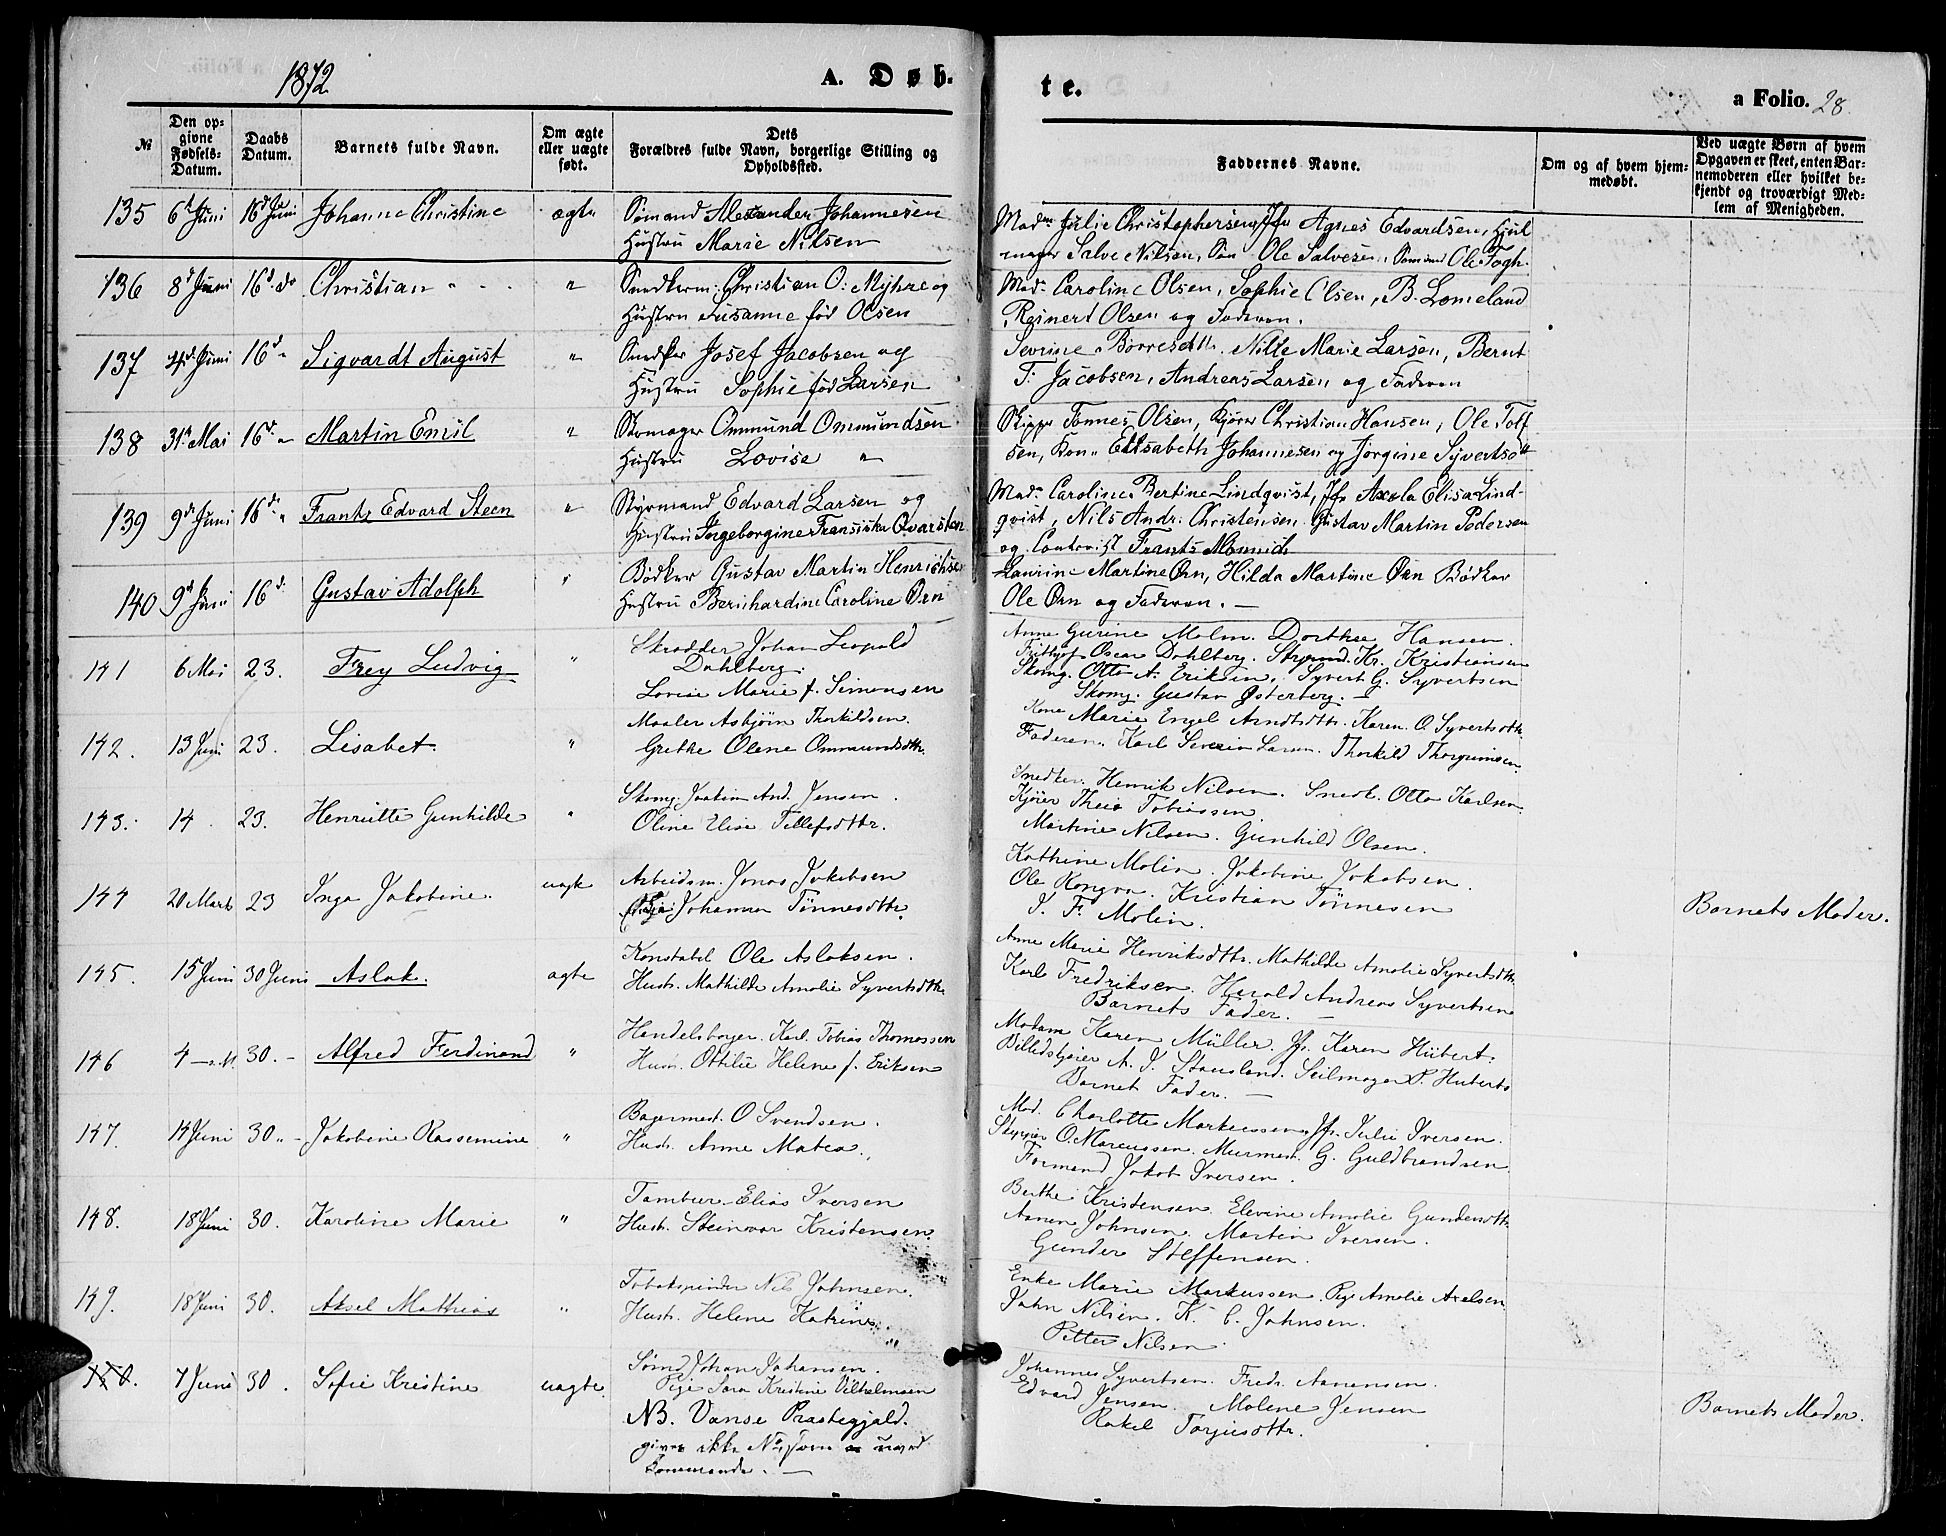 1872
A. Døb-
te.
a Folio. 28.
№
Den op-
givne
Fødsels-
Datum.
Daabs
Datum.
Barnets fulde Navn.
Om ægte
eller uægte
født.
Dets
Forældres fulde Navn, borgerlige Stilling og
Opholdssted.
Faddernes Navne.
Om og af hvem hjem-
medøbt.
Ved uægte Børn af hvem
Opgaven er skeet, enten Bar-
nemoderen eller hvilket be-
kjendt og troværdigt Med-
lem af Menigheden.
135 6te Juni 16d Juni Johanne Christine ægte Sømand Alexander Johannesen
Hustru Marie Nilsen
Madm Julie Christophersen, Jfr Agnes Edvardsen, Hjul
mager Salve Nilsen, Søn Ole Salvesen, Sømand Ole Fogh.
136 8d Juni 16d do Christian " Snedkerm. Christian O. Myhre og
Hustru Susanne fød Olsen
Mad. Caroline Olsen, Sophie Olsen, B. Lomeland
Reinert Olsen og Faderen.
137 4d Juni 16d " Sigvardt August " Snedker Josef Jacobsen og
Hustru Sophie fød Larsen
Sevrine Børresdtt. Nille Marie Larsen, Bernt
T. Jacobsen, Andreas Larsen og Faderen
138 31te Mai 16d " Martin Emil " Skomager Ommund Ommundsen
Hustru Lovise "
Skipper Tønnes Olsen, Kjører Christian Hansen, Ole Tolf
sen, Kone Elisabeth Johannesen og Jørgine Syvertsdtt
139 9de Juni 16d " Frantz Edvard Steen " Styrmand Edvard Larsen og
Hustru Ingeborgine Fransiska Qvarsten
Mad. Caroline Bertine Lindqvist, Jfr Axela Elisa Lind-
qvist, Nils Andr. Christensen. Gustav Martin Pedersen
og Frants Monnich
140 9d Juni 16d. Gustav Adolph " Bødker Gustav Martin Henrichsen
Hustru Bernhardine Caroline Ørn
Laurine Martine Ørn, Hilda Martine Ørn Bødker
Ole Ørn og Faderen. —
141 6 Mai 23. Frey Ludvig " Skrædder Johan Leopold
Dahlberg.
Lovise Marie f. Simonsen
Anne Gurine Malm. Dorthee Hansen.
Frithjof Oscar Dahlberg. Styrmd. Kr. Kristiansen
Skomg. Otto A. Eriksen, Syvert G. Syvertsen
Skomg. Gustav Østerberg. —
142. 13 Juni 23. Lisabet. " Maaler Asbjørn Thorkildsen.
Grethe Olene Ommundsdtr.
Kone Marie Engel Arndtsdtr. Karen O. Syvertsdtr.
Faderen. Karl Severin Larsen. Thorkild Thorgrimsen.
143. 14. 23. Henriette Gunhilde " Skomg. Joakim And. Jensen.
Oline Elise Tellefsdttr.
Snedker Henrik Nilsen. Snedk. Otto Karlsen.
Kjører Theis Tobiassen.
Martine Nilsen. Gunhild Olsen.
144 20 Marts 23 Inga Jakobine. uægte Arbeidsm. Jonas Jakobsen
Pige Johanna Tønnesdttr.
Kathine Molin. Jakobine Jakobsen.
Ole Kongva. Kristian Tønnesen
J. F. Molin.
Barnets Moder.
145. 15 Juni 30 Juni Aslak. ægte Konstabel Ole Aslaksen.
Hust. Mathilde Amalie Syvertsdttr.
Anne Marie Henriksdttr. Mathilde Amalie Syvertsdtr.
Karl Fredriksen. Herald Andreas Syvertsen
Barnets Fader. —
146 4 — s.M. 30. — Alfred Ferdinand " Handelsborger. Karl Tobias Thomassen
Hust. Ottilie Helene f. Eriksen
Madam Karen Müller. Jfr. Karen Hübert.
A. J. Stousland. Seilmager P. Huberts
Barnets Fader. —
147. 14 Juni 30. " — Jakobine Rassemine " Bagermest. O Svendsen.
Hust. Anne Matea.
Mad. Charlotte Markussen, Jfr. Julie Iversen.
Skipper O. Marcussen. Murmest. G. Guldbrandsen
Formand Jakob Iversen.
148. 18 Juni 30. Karoline Marie " Tambur. Elias Iversen
Hust. Steinvor Kristensen.
Berthe Kristensen. Elevine Amalie Gundersdtr.
Aanen Johnsen. Martin Iversen.
Gunder Steffensen.
149. 18 Juni 30. Aksel Mathias " Tobakspinder Nils Johnsen.
Hust. Helene Katrine.
Enke Marie Markussen. Pige Amalie Axelsen
John Nilsen. K. C. Johnsen.
Petter Nilsen
150. 7 Juni 30. Sofie Kristine uægte Sømd Johan Johansen.
Pige Sara Kristine Vilhelmsen
NB. Vanse Præstegjæld.
gives ikke No,
Johannes Syvertsen. Fredr. Aanensen.
Edvard Jensen. Malene Jensen
Rakel Torjusdttr.
Barnets Moder.